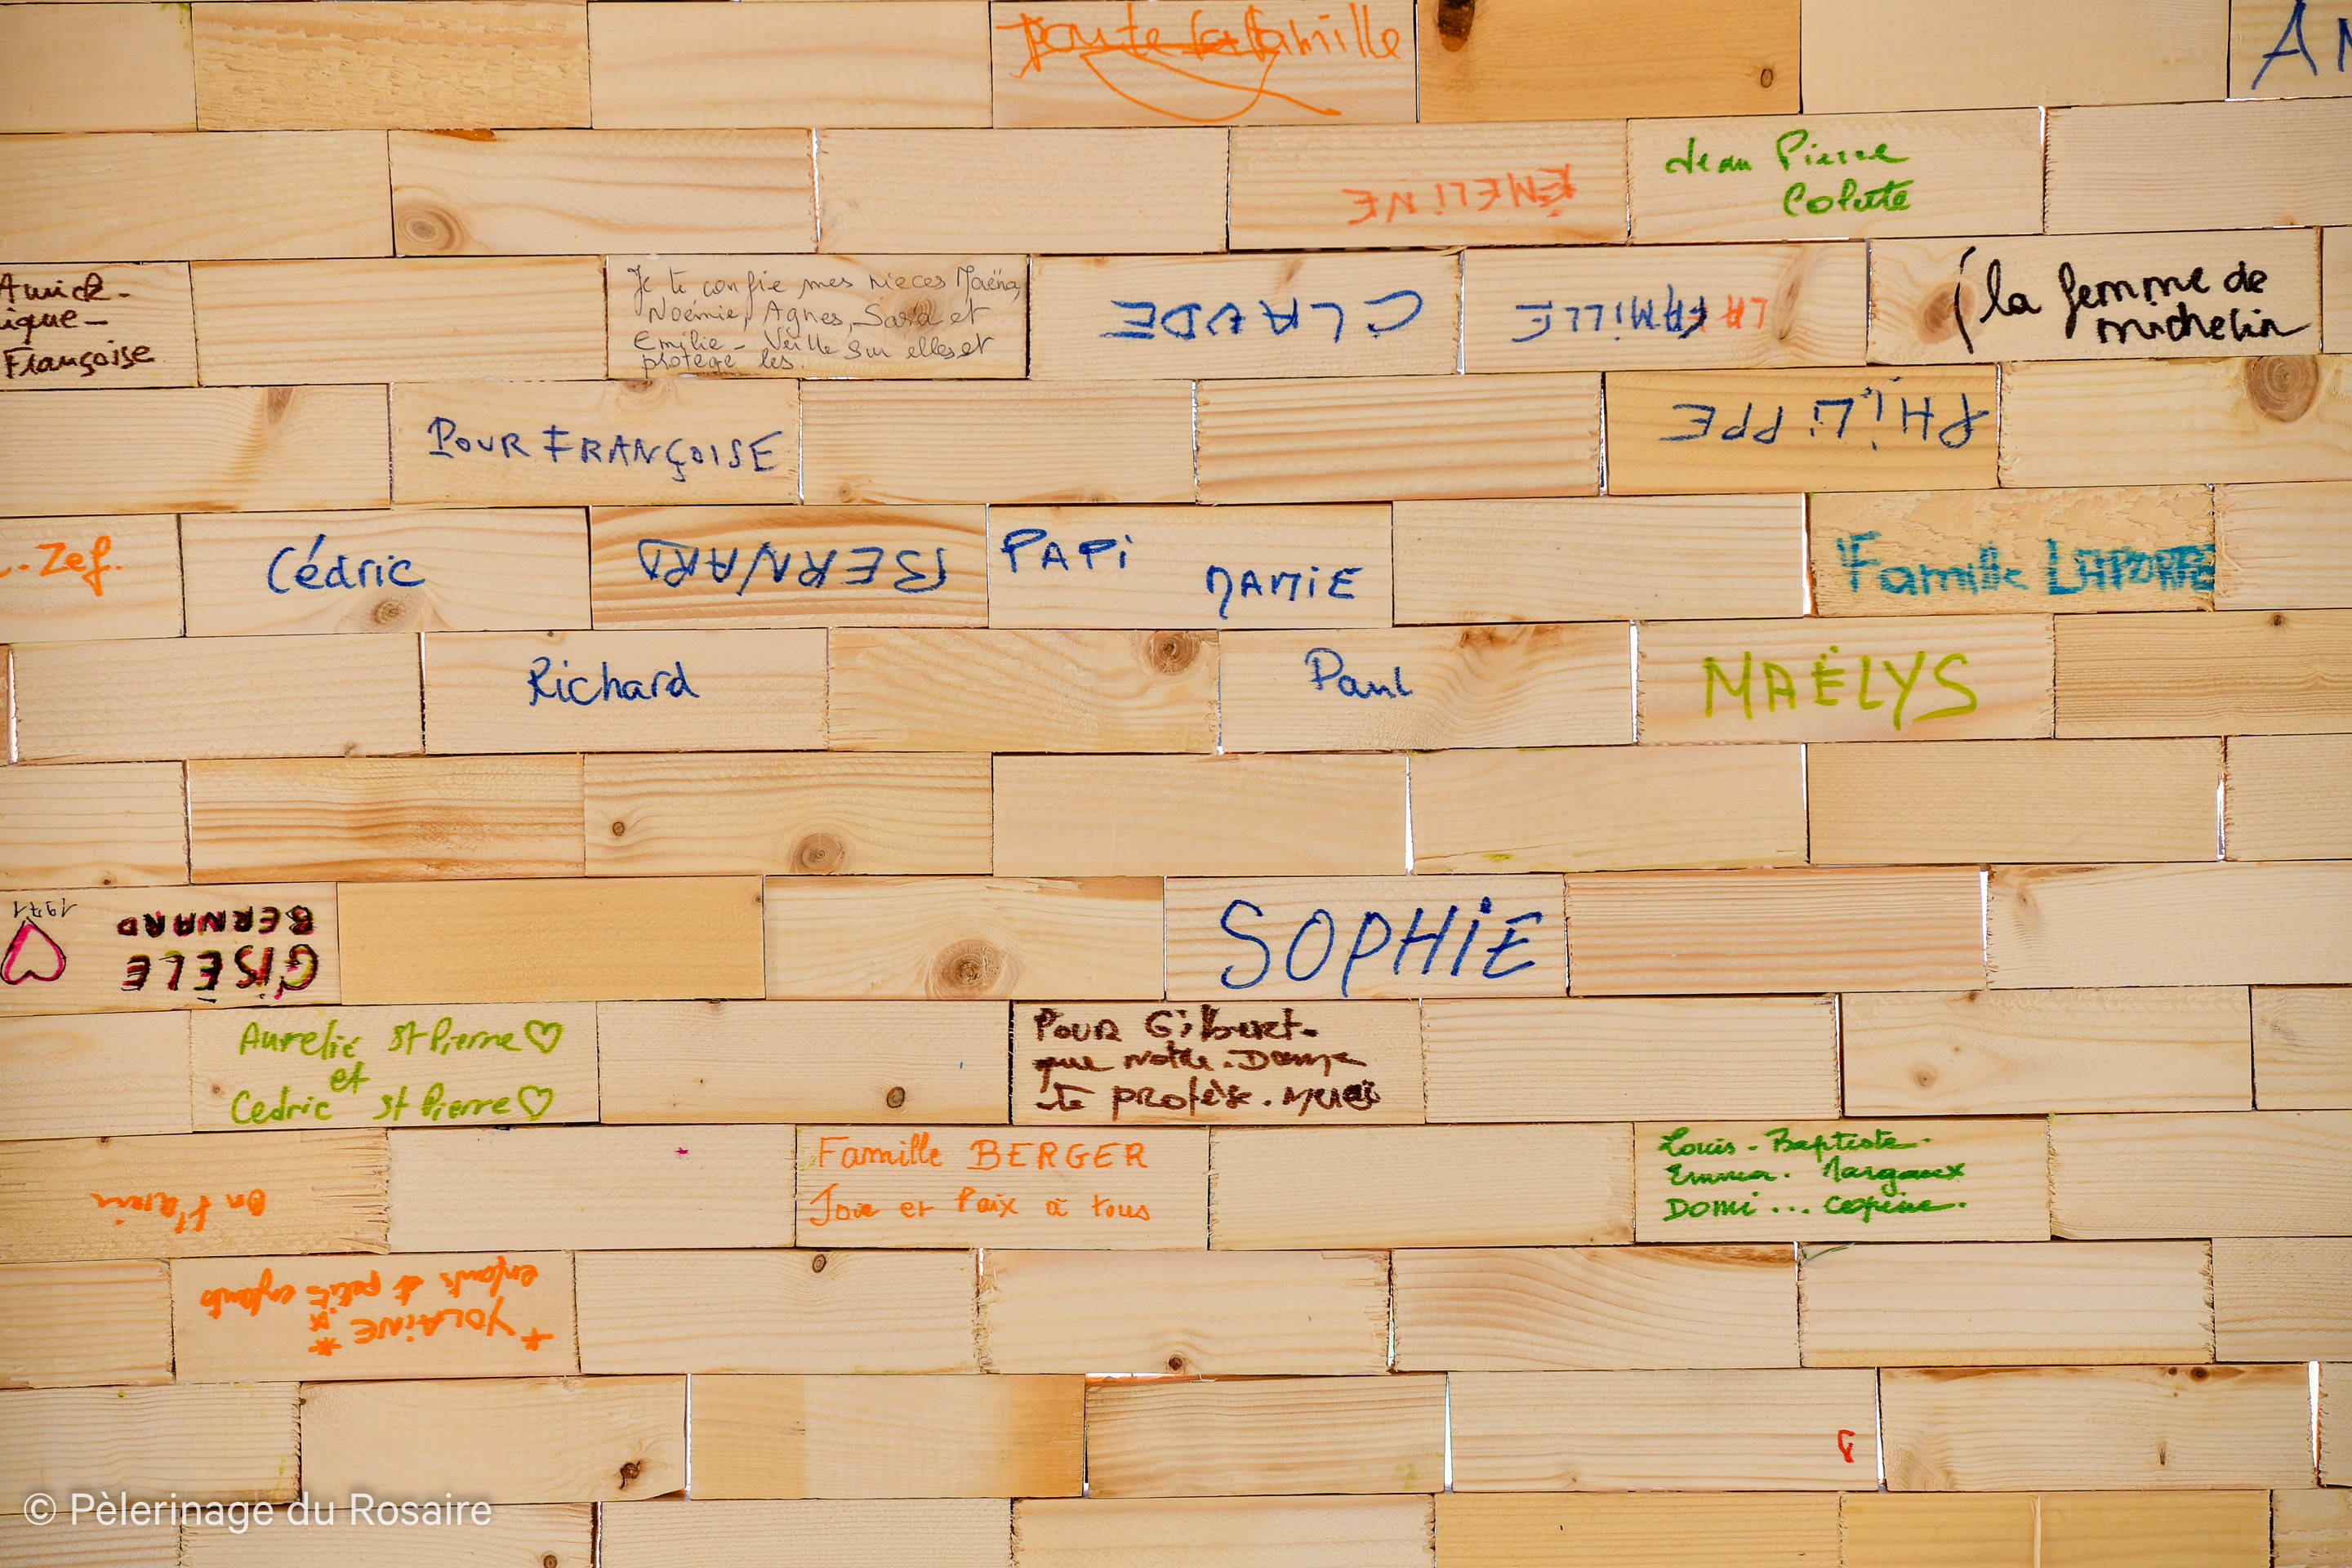 toute la famille
AN
ÉMELINE
Jean Pierre
Colette
Annick-
ique-
Françoise
Je te confie mes nieces Maëna,
Noémie, Agnes, Sara et
Emilie - Veille sur elles et
protège les.
CLAUDE
LA FAMILLE
(la femme de
michelin
POUR FRANÇOISE
PHiLiPPE
Zef.
Cédric
BERNARD
PAPi
MAMiE
Famille LAPORTE
Richard
Paul
MAËLYS
GiSÈLE
BERNARD
1971
SOPHiE
Aurelie St Pierre
et
Cedric St Pierre
POUR Gilbert.
que notre. Dame
te protège. Merci
on t'aime
Famille BERGER
Joie et Paix à tous
Louis - Baptiste.
Emma. Margaux
Domi ... copine.
+ YOLAiNE *
enfants et petits enfants
© Pèlerinage du Rosaire